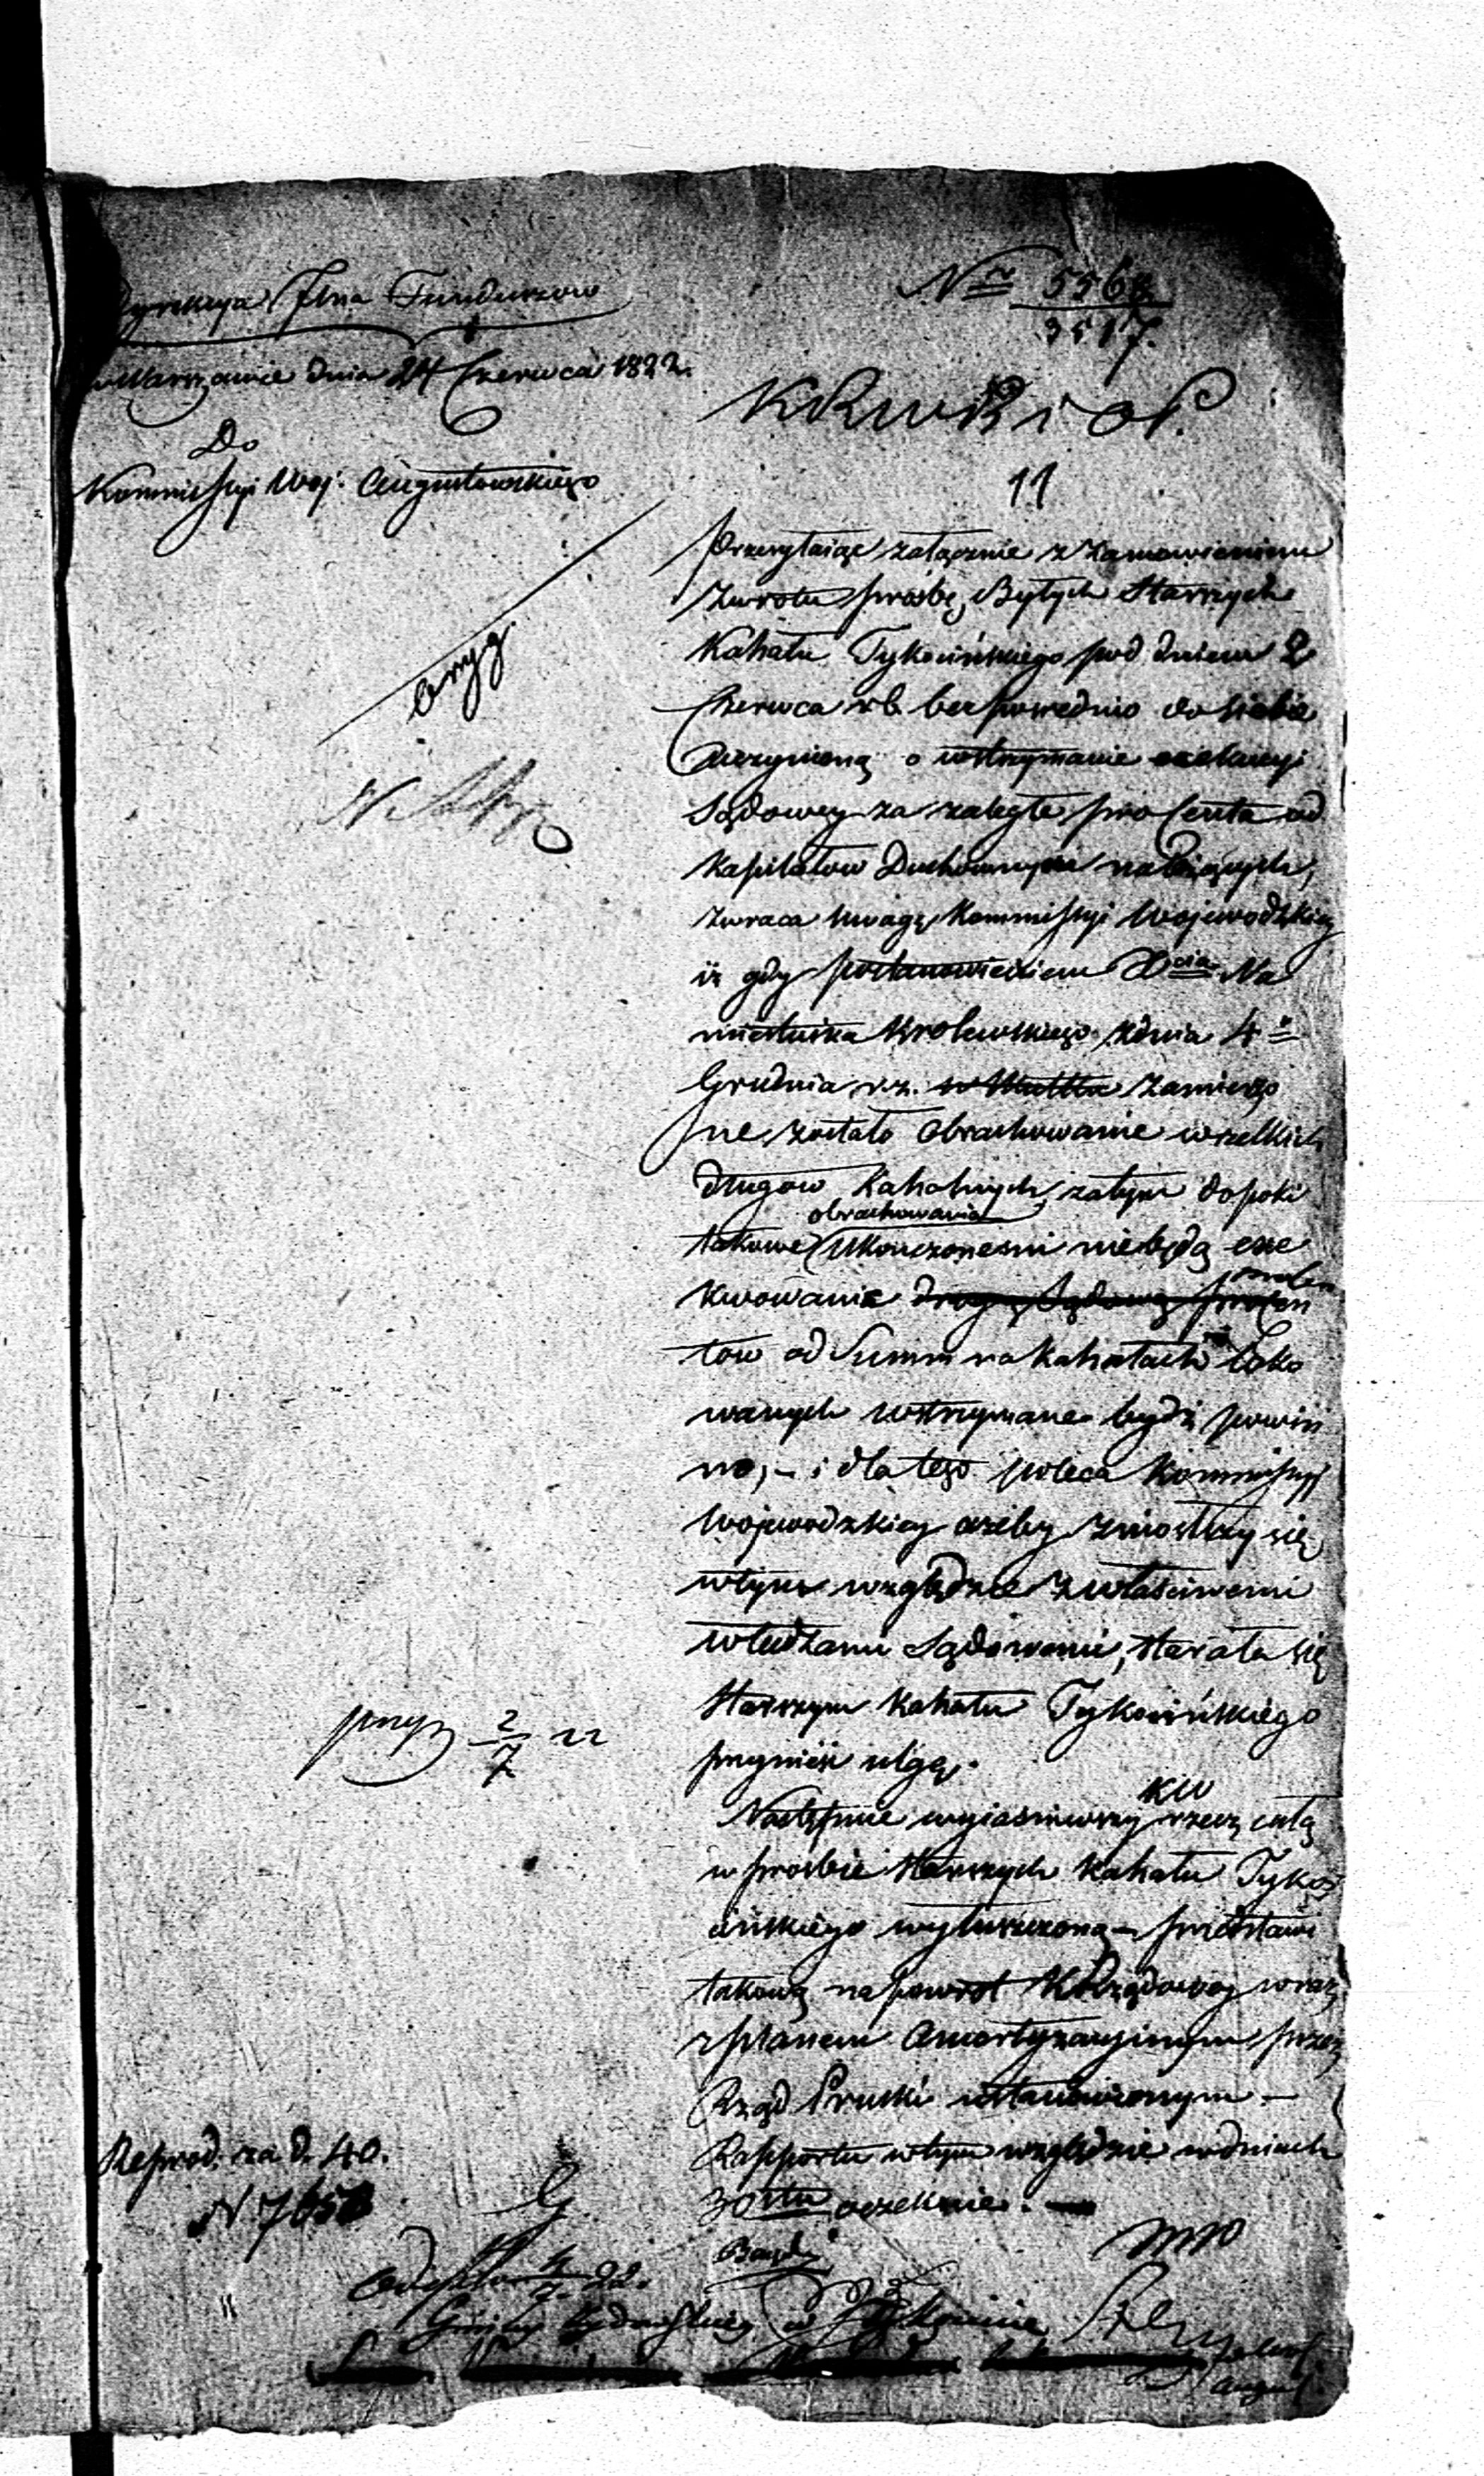 Dyrekcya Jlna Funduszow
w Warszawie dnia 24 Czerwca 1822.
Do
Kommissyi Woj. Augustowskiego
Nr 5568
3517.
KRwR i OP.
11
Przesyłaiąc załącznie z zamowieniem
zwrotu prośbę Bytych Starszych
Kahału Tykocińskiego pod dniem 2
Czerwca rb. bezposrednio do siebie
uczynioną o wstrzymanie exekucyi
Sądowey za zaległe procenta od
Kapitałow Duchownych należących,
zwraca uwagę Kommissyi Wojewodzkiey
iż gdy postanowieniem Xcia Na
miestnika Krolewskiego z dnia 4
Grudnia r.z. zamierzo
ne zostało obrachowanie wszelkich
długow Kahalnych, zatym dopoki
obrachowania
takowe ukończonemi nie będą exe
kwowanie drogą Sądową procen
tow od Summ na Kahałach loko
wanych wstrzymane bydź powin
no, - i dla tego poleca Kommissyi
Wojewodzkiey ażeby zniosłszy się
w tym względzie z właściwemi
władzami Sądowemi, starała się
Starszym Kahału Tykocińskiego
przynieść ulgę.
Następnie wyiaśniwszy rzecz całą
w prosbie Starszych Kahału Tyko
cińskiego wyłuszczoną - przedstawi
takową na powrot KRządowey wraz
z planem Amortyzacyinym przez
Rząd Pruski ustanowionym -
Rapportu w tym względzie w dniach
30stu oczekuie. -
oryg.
przyp 2/7 22
Reprod. za d. 40.
N 7658
Odeszło 4/7 22.
Gminy Żydowskiey w Tykocinie